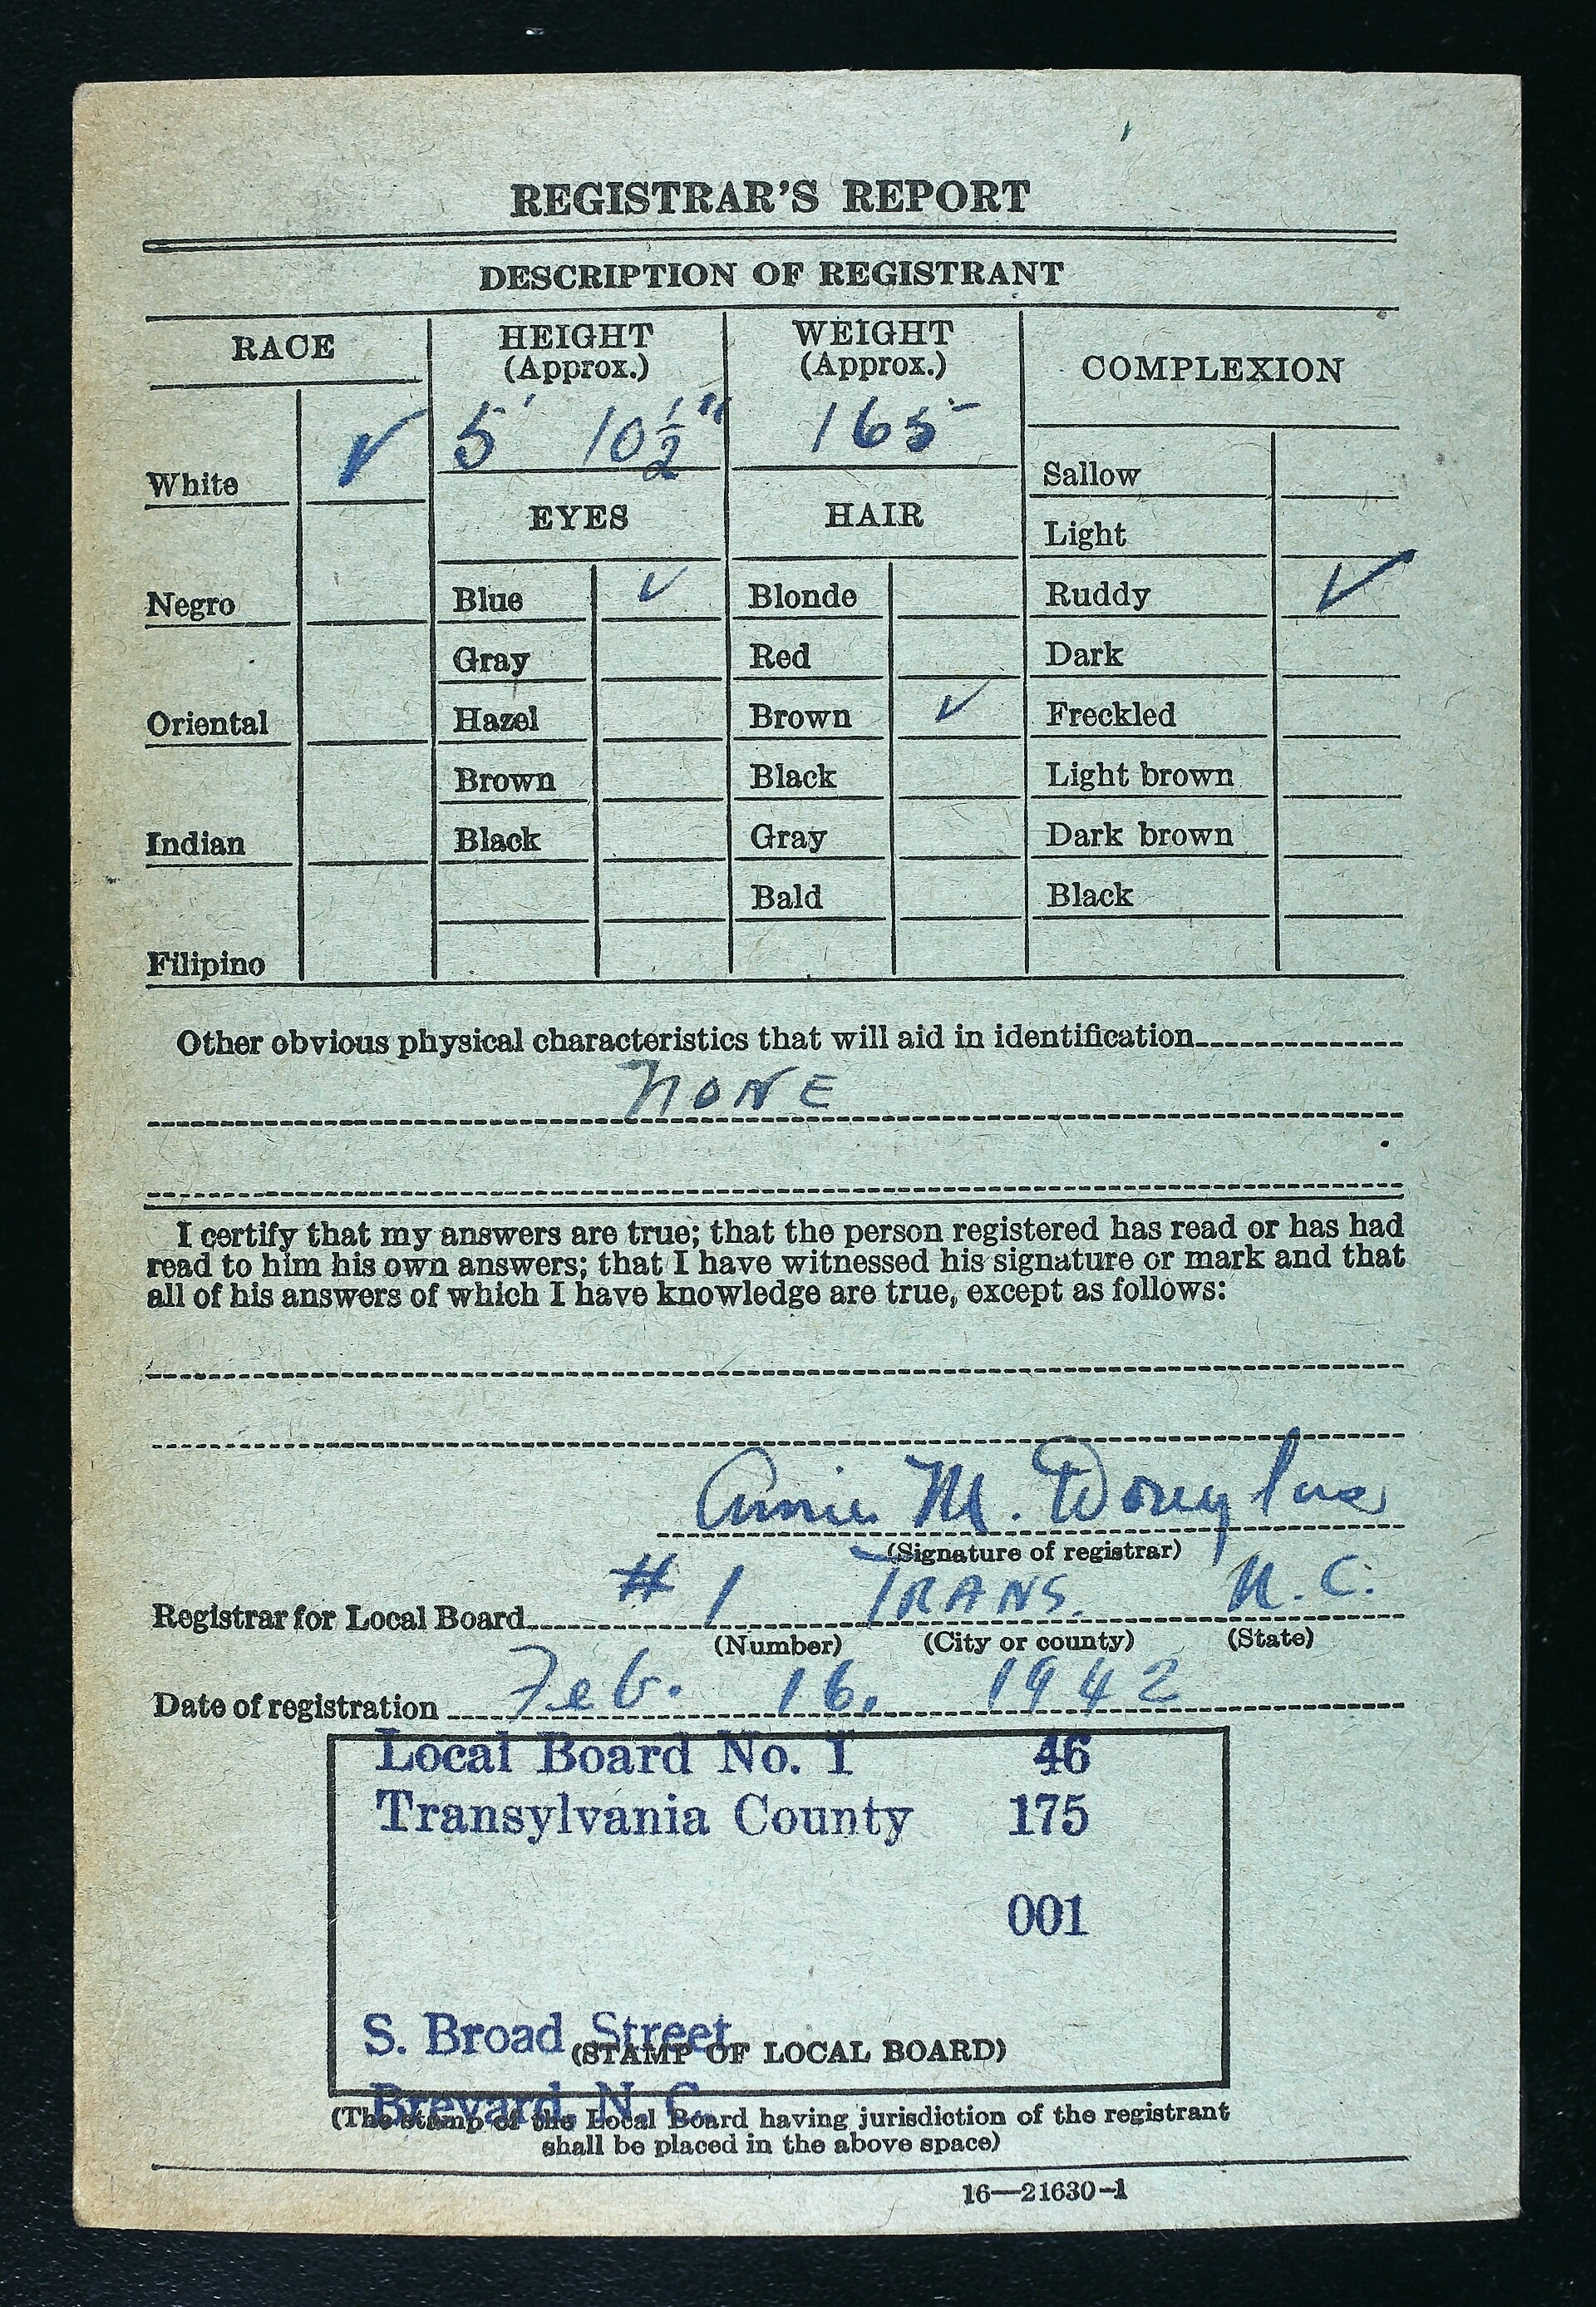 REGISTRAR'S REPORT
DESCRIPTION OF REGISTRANT
RACE HEIGHT (Approx.) WEIGHT (Approx.) COMPLEXION
5' 10 1/2" 165
White ✓
Negro
Oriental
Indian
Filipino
EYES
Blue ✓
Gray
Hazel
Brown
Black
HAIR
Blonde
Red
Brown ✓
Black
Gray
Bald
Sallow
Light
Ruddy ✓
Dark
Freckled
Light brown
Dark brown
Black
Other obvious physical characteristics that will aid in identification
NONE
I certify that my answers are true; that the person registered has read or has had
read to him his own answers; that I have witnessed his signature or mark and that
all of his answers of which I have knowledge are true, except as follows:
Annie M. Douglas
(Signature of registrar)
Registrar for Local Board # 1 TRANS. N.C.
(Number) (City or county) (State)
Date of registration Feb. 16, 1942
Local Board No. 1 46
Transylvania County 175
001
S. Broad Street
(STAMP OF LOCAL BOARD)
Brevard, N. C.
(The stamp of the Local Board having jurisdiction of the registrant
shall be placed in the above space)
16—21630-1